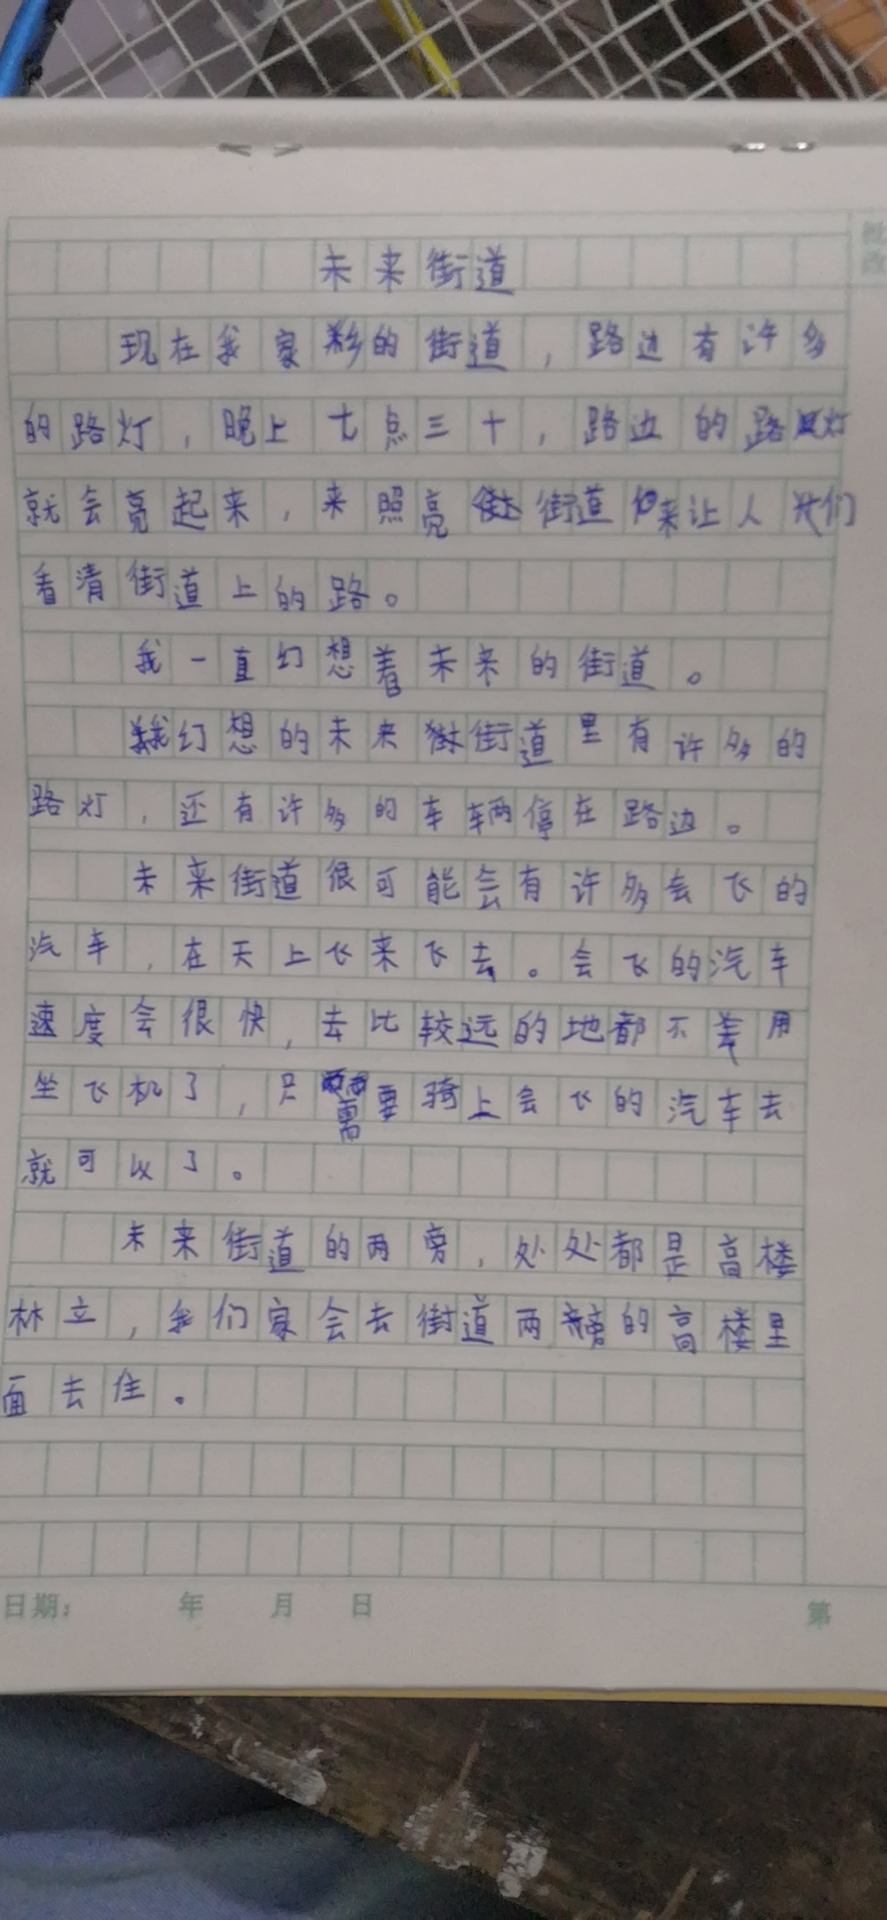 未来街道
现在我家乡的街道，路边有许多
的路灯，晚上七点三十，路边的路灯
就会亮起来，来照亮街道来让人我们
看清街道上的路。
我一直幻想着未来的街道。
我幻想的未来街道里有许多的
路灯，还有许多的车辆停在路边。
未来街道很可能会有许多会飞的
汽车，在天上飞来飞去。会飞的汽车
速度会很快，去比较远的地都不用
坐飞机了，只需要骑上会飞的汽车去
就可以了。
未来街道的两旁，处处都是高楼
林立，我们家会去街道两旁的高楼里
面去住。
日期： 年 月 日
第